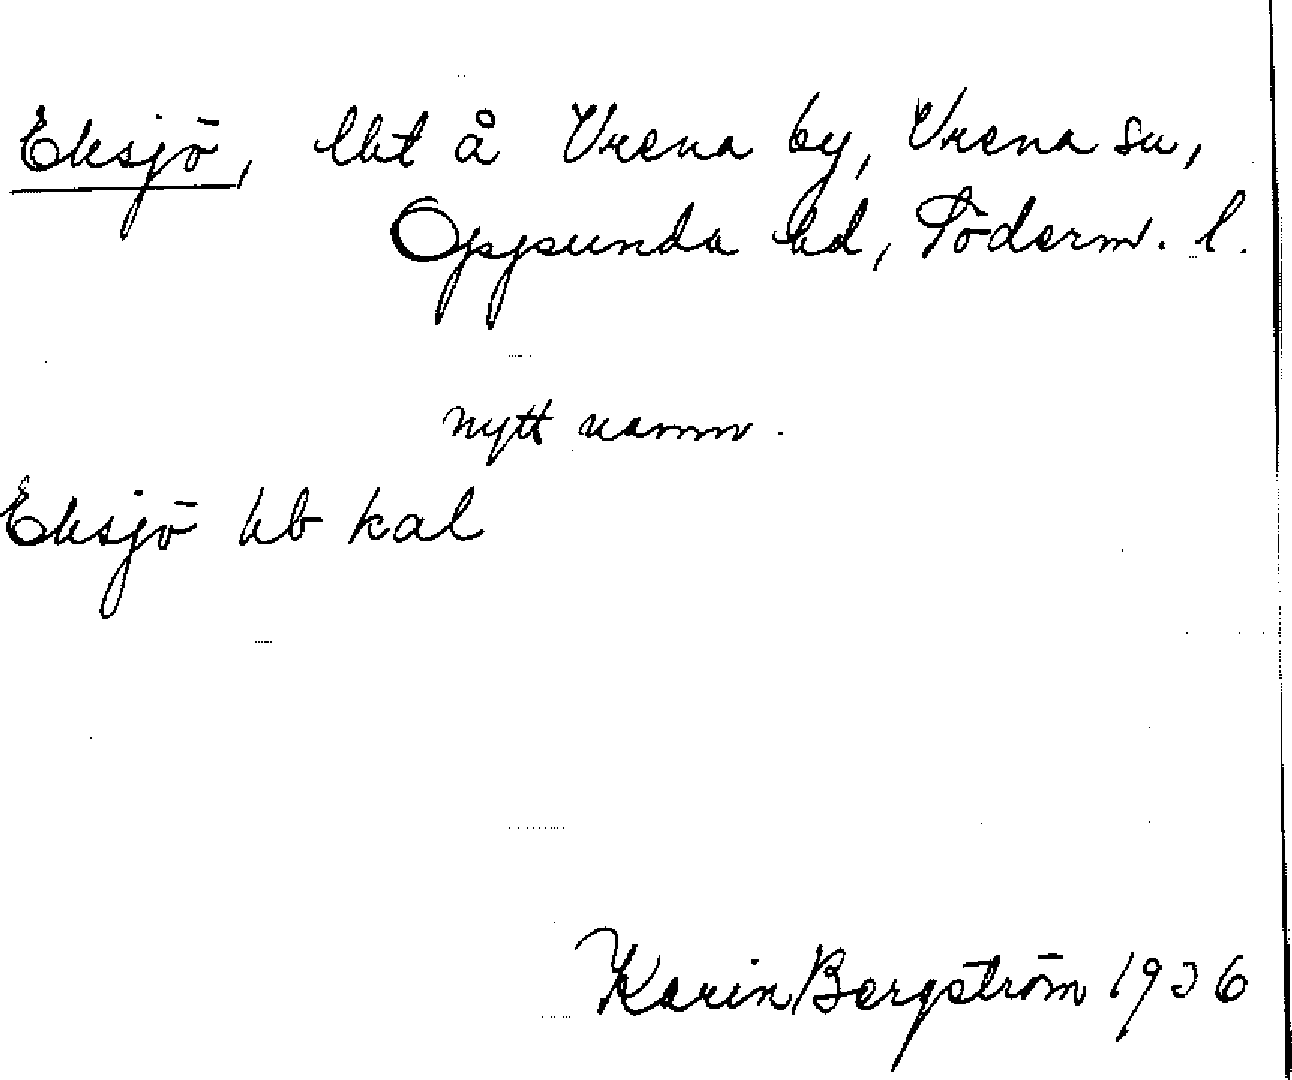 Eksjö, lht å Vrena by, Vrena sn,
Oppunda hd, Söderm. l.
nytt namn.
Eksjö hb kal
Karin Bergström 1936